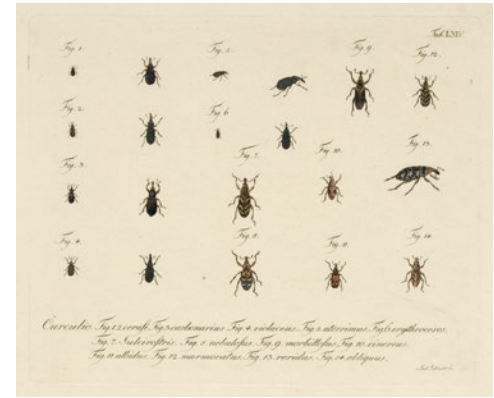 Tab. LXIV.
Fig. 1.
Fig. 5.
Fig. 9.
Fig. 12.
Fig. 2.
Fig. 6
Fig. 7.
Fig. 10.
Fig. 13.
Fig. 3.
Fig. 4.
Fig. 8.
Fig. 11.
Fig. 14.
Curculio. Fig. 1.2. Fig. 3. carbonarius. Fig. 4. violaceus. Fig. 5. aterrimus. Fig. 6. erythroceros.
Fig. 7. Sulcirostris. Fig. 8. nebulosus. Fig. 9. morbillosus. Fig. 10. cinereus.
Fig. 11. albidus. Fig. 12. marmoratus. Fig. 13. roridus. Fig. 14. obliquus.